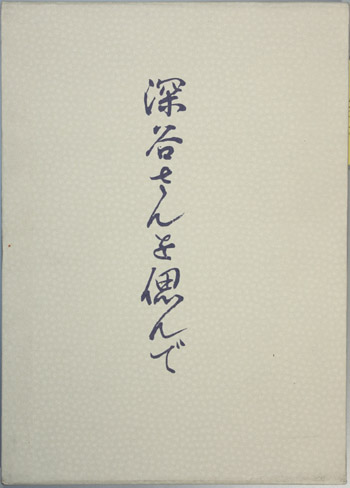 深谷さんを偲んで